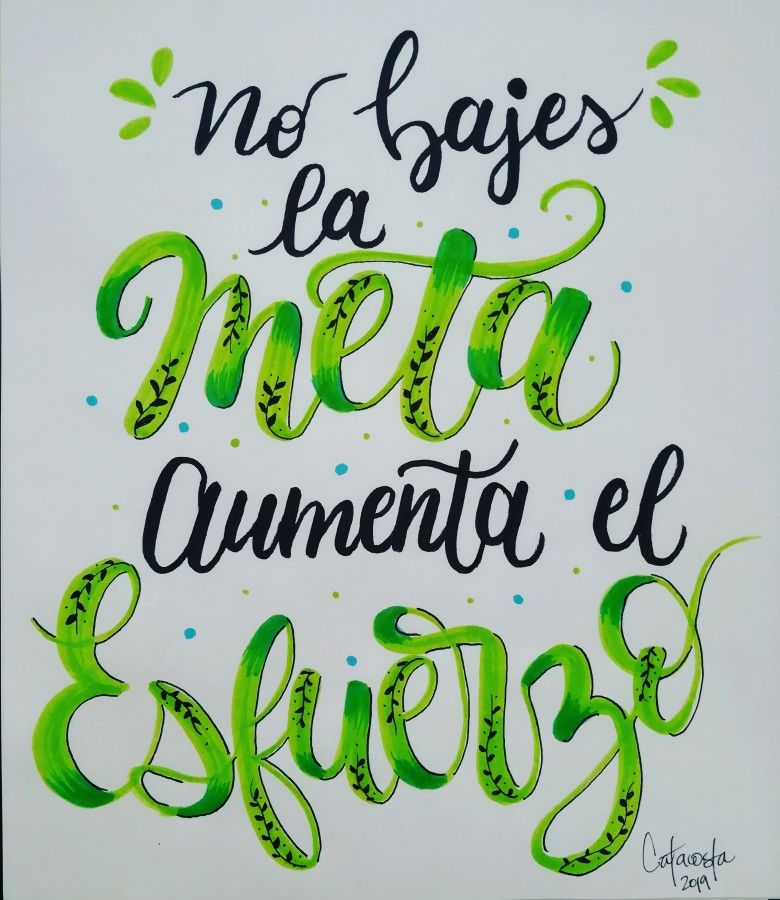 no bajes
la
meta
aumenta el
Esfuerzo
Catacosta
2019